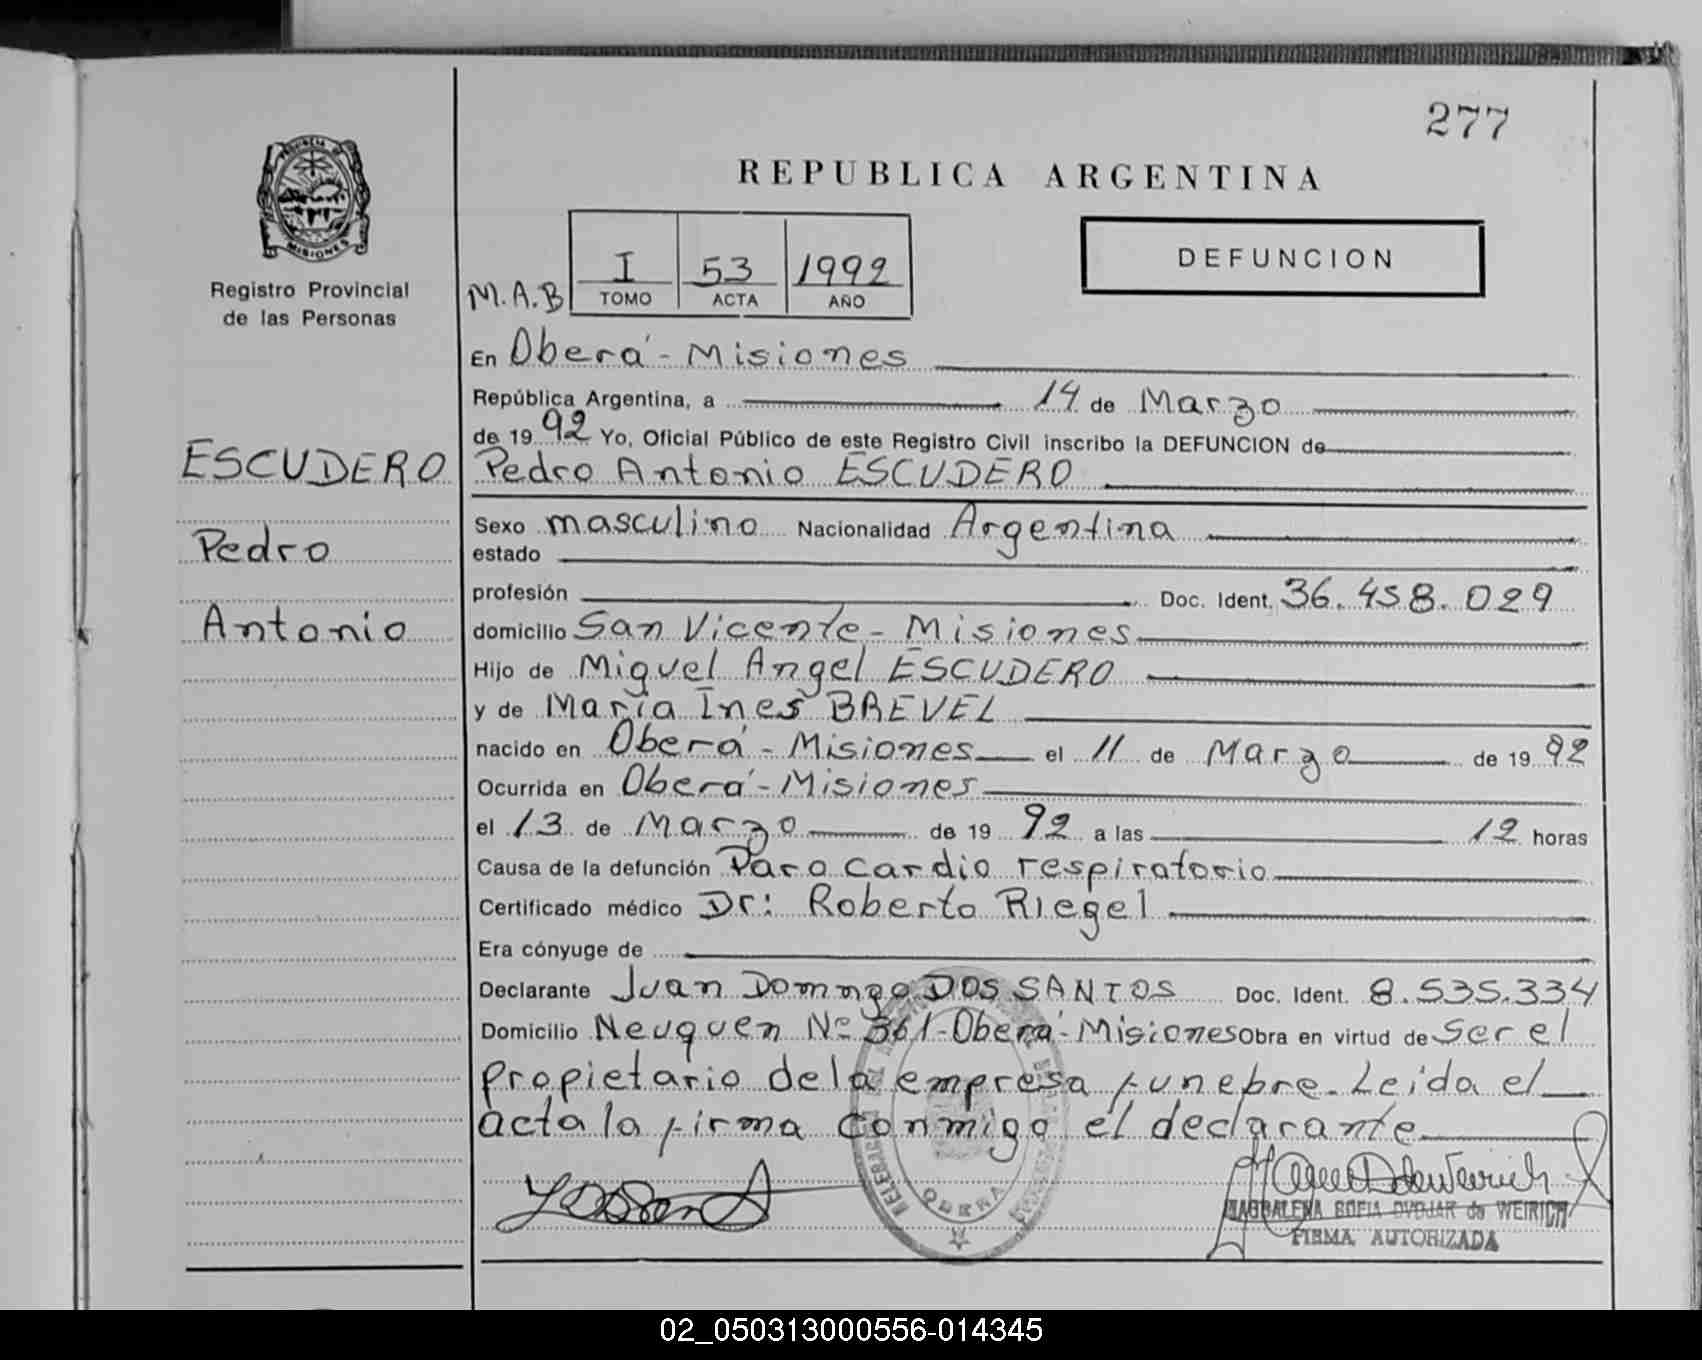 277
REPUBLICA ARGENTINA
PROVINCIA DE
MISIONES
Registro Provincial
de las Personas
M.A.B
I
TOMO
53
ACTA
1992
AÑO
DEFUNCION
En Oberá - Misiones
República Argentina, a 14 de Marzo
de 1992 Yo, Oficial Público de este Registro Civil inscribo la DEFUNCION de
ESCUDERO
Pedro
Antonio
Pedro Antonio ESCUDERO
Sexo masculino Nacionalidad Argentina
estado
profesión Doc. Ident. 36.458.029
domicilio San Vicente - Misiones
Hijo de Miguel Angel ESCUDERO
y de María Ines BREVEL
nacido en Oberá - Misiones el 11 de Marzo de 1992
Ocurrida en Oberá - Misiones
el 13 de Marzo de 1992 a las 12 horas
Causa de la defunción Paro cardio respiratorio
Certificado médico Dr: Roberto Riegel
Era cónyuge de
Declarante Juan Domngo DOS SANTOS Doc. Ident. 8.535.334
Domicilio Neuquen Nº 361 - Oberá - Misiones Obra en virtud de Ser el
propietario de la empresa funebre. Leida el
acta la firma conmigo el declarante
OBERA
MAGDALENA SOFIA DVOJAR de WEIRICH
FIRMA AUTORIZADA
02_050313000556-014345